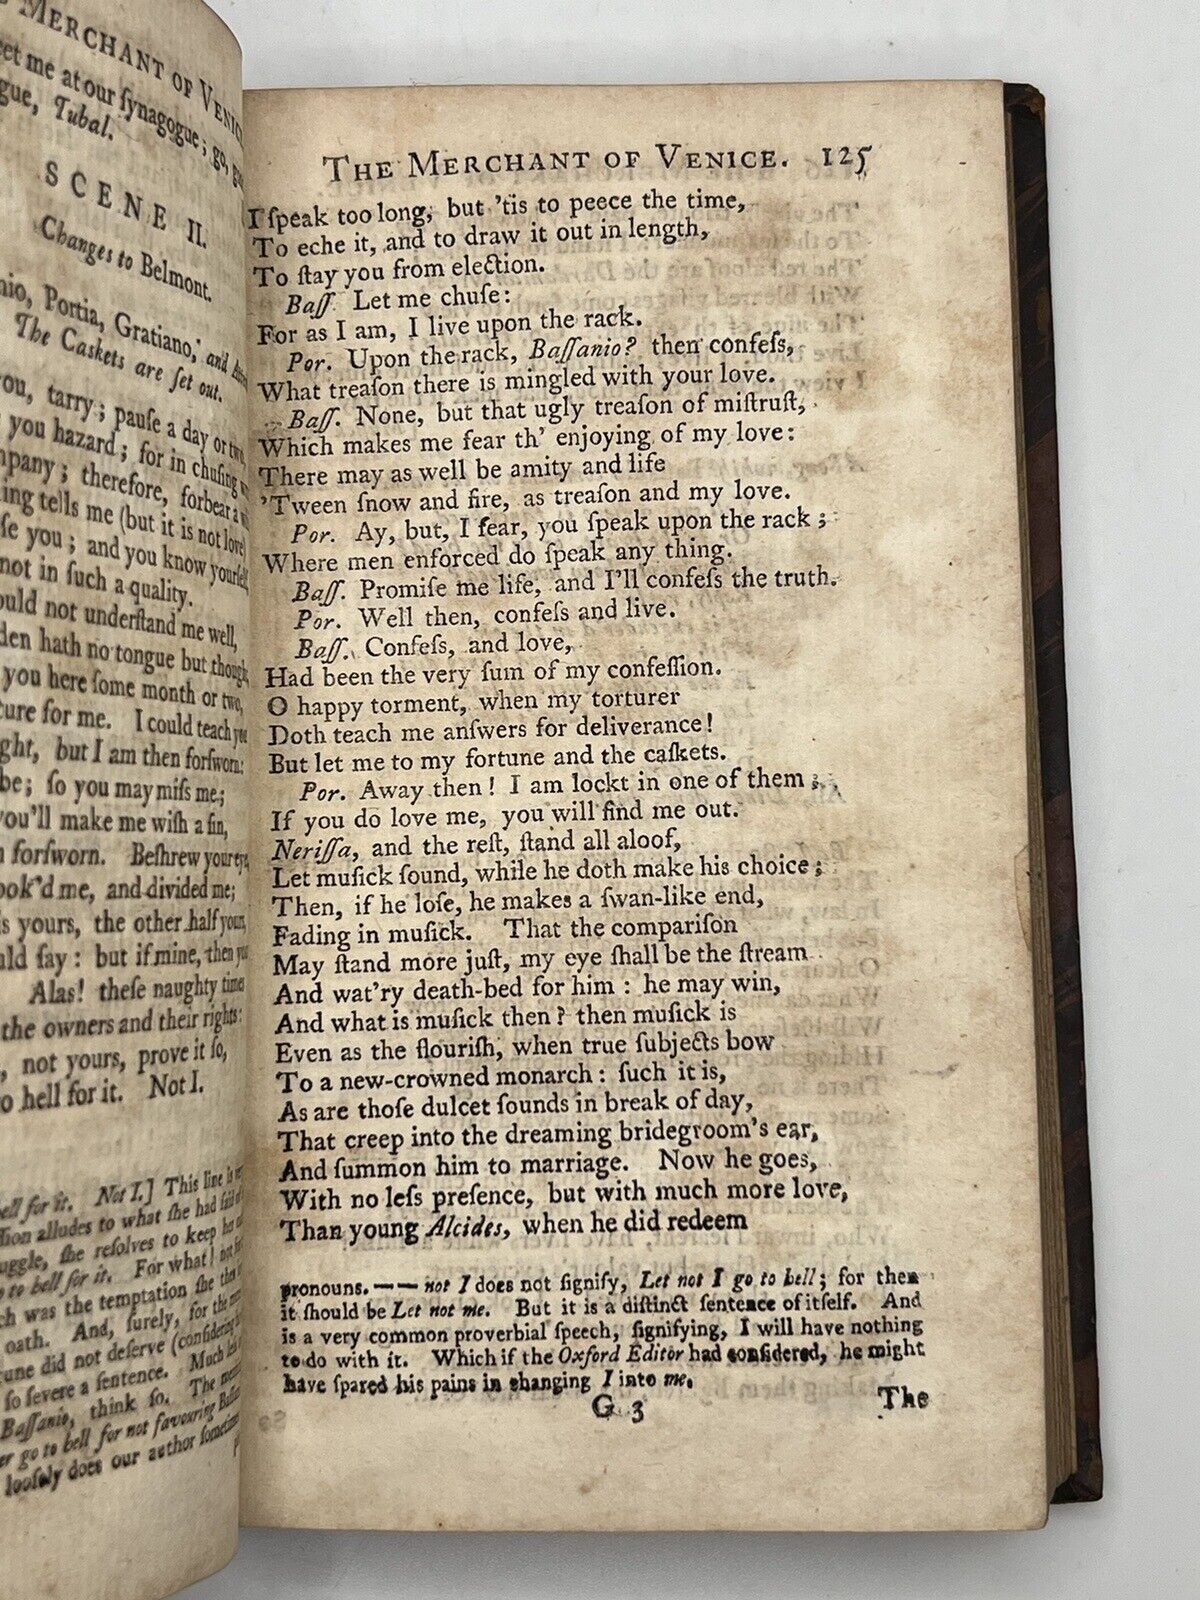 MERCHANT OF VENIC
et me at our ſynagogue; go, go
gue, Tubal.
SCENE II.
Changes to Belmont.
nio, Portia, Gratiano, and
The Caskets are ſet out.
you, tarry; pauſe a day or two,
you hazard; for in chuſing
mpany; therefore, forbear a
ing tells me (but it is not love)
ſe you; and you know yourſelf,
not in ſuch a quality.
ould not underſtand me well,
den hath no tongue but thought,
you here ſome month or two,
ture for me. I could teach you
ght, but I am then forſworn:
be; ſo you may miſs me;
you'll make me wiſh a ſin,
n forſworn. Beſhrew your eyes,
ook'd me, and divided me;
is yours, the other half yours,
uld ſay: but if mine, then you
Alas! theſe naughty times
the owners and their rights:
, not yours, prove it ſo,
o hell for it. Not I.
hell for it. Not I.] This line is
tion alludes to what ſhe had ſaid
uggle, ſhe reſolves to keep her
to hell for it. For what! not
ch was the temptation ſhe then
oath. And, ſurely, for the
une did not deſerve (conſidering
ſo ſevere a ſentence. Much leſs
Baſſanio, think ſo. The
er go to hell for not favouring Baſſ
looſely does our author ſometimes
THE MERCHANT OF VENICE. 125
I ſpeak too long, but 'tis to peece the time,
To eche it, and to draw it out in length,
To ſtay you from election.
Baſſ. Let me chuſe:
For as I am, I live upon the rack.
Por. Upon the rack, Baſſanio? then confeſs,
What treaſon there is mingled with your love.
Baſſ. None, but that ugly treaſon of miſtruſt,
Which makes me fear th' enjoying of my love:
There may as well be amity and life
'Tween ſnow and fire, as treaſon and my love.
Por. Ay, but, I fear, you ſpeak upon the rack;
Where men enforced do ſpeak any thing.
Baſſ. Promiſe me life, and I'll confeſs the truth.
Por. Well then, confeſs and live.
Baſſ. Confeſs, and love,
Had been the very ſum of my confeſſion.
O happy torment, when my torturer
Doth teach me anſwers for deliverance!
But let me to my fortune and the caſkets.
Por. Away then! I am lockt in one of them;
If you do love me, you will find me out.
Neriſſa, and the reſt, ſtand all aloof,
Let muſick ſound, while he doth make his choice;
Then, if he loſe, he makes a ſwan-like end,
Fading in muſick. That the compariſon
May ſtand more juſt, my eye ſhall be the ſtream
And wat'ry death-bed for him: he may win,
And what is muſick then? then muſick is
Even as the flouriſh, when true ſubjects bow
To a new-crowned monarch: ſuch it is,
As are thoſe dulcet ſounds in break of day,
That creep into the dreaming bridegroom's ear,
And ſummon him to marriage. Now he goes,
With no leſs preſence, but with much more love,
Than young Alcides, when he did redeem
pronouns.—— not I does not ſignify, Let not I go to hell; for then
it ſhould be Let not me. But it is a diſtinct ſentence of itſelf. And
is a very common proverbial ſpeech, ſignifying, I will have nothing
to do with it. Which if the Oxford Editor had conſidered, he might
have ſpared his pains in changing I into me.
G 3 The